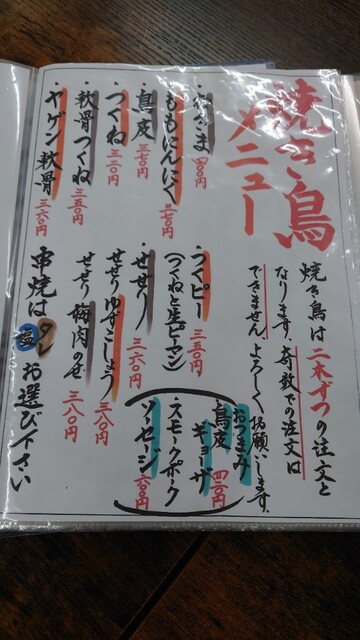 焼き鳥
メニュー
焼き鳥は二本ずつの注文と
なります。奇数での注文は
できません。よろしくお願いします。
・ねぎま 四〇〇円
・ももにんにく 三七〇円
・鳥皮 三七〇円
・つくね 三二〇円
・軟骨つくね 三五〇円
・ヤゲン軟骨 三六〇円
・つくピー 三五〇円
(つくねと生ピーマン)
・せせり 三六〇円
せせりゆずこしょう 三八〇円
せせり梅肉のせ 三八〇円
おつまみ
鳥皮ギョーザ 四二〇円
スモークポーク
ソーセージ 六〇〇円
串焼はタレ 塩 お選び下さい